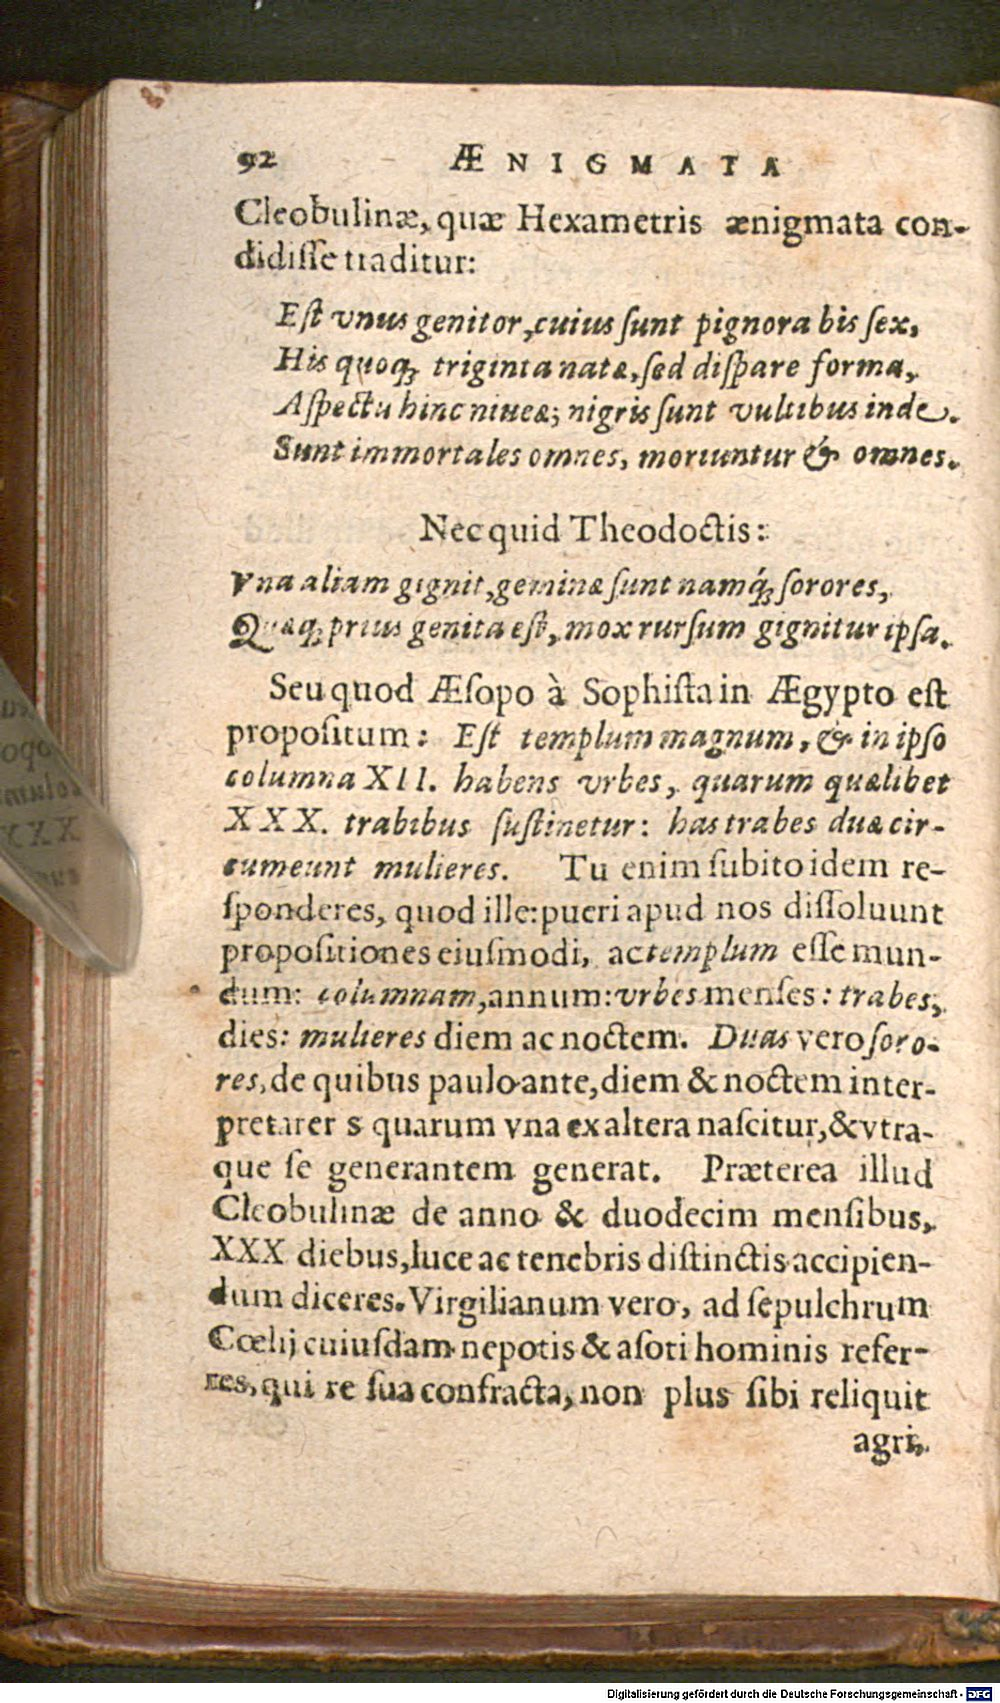 92 ÆNIGMATA
Cleobulinæ, quæ Hexametris ænigmata con-
didiſſe traditur:
Eſt vnus genitor, cuius ſunt pignora bis ſex,
His quoq; triginta natæ, ſed diſpare forma,
Aſpectu hinc niueæ; nigris ſunt vultibus inde.
Sunt immortales omnes, moriuntur & omnes.
Nec quid Theodoctis:
Vna aliam gignit, geminæ ſunt namq́; ſorores,
Quæq; prius genita eſt, mox rurſum gignitur ipſa.
Seu quod Æſopo à Sophiſta in Ægypto eſt
propoſitum: Eſt templum magnum, & in ipſo
columna XII. habens vrbes, quarum quælibet
XXX. trabibus ſuſtinetur: has trabes duæ cir-
cumeunt mulieres. Tu enim ſubito idem re-
ſponderes, quod ille: pueri apud nos diſſoluunt
propoſitiones eiuſmodi, ac templum eſſe mun-
dum: columnam, annum: vrbes menſes: trabes,
dies: mulieres diem ac noctem. Duas vero ſoro-
res, de quibus paulo ante, diem & noctem inter-
pretarer s quarum vna ex altera naſcitur, & vtra-
que ſe generantem generat. Præterea illud
Cleobulinæ de anno & duodecim menſibus,
XXX diebus, luce ac tenebris diſtinctis accipien-
dum diceres. Virgilianum vero, ad ſepulchrum
Cœlij cuiuſdam nepotis & aſoti hominis refer-
res, qui re ſua confracta, non plus ſibi reliquit
agri,
Digitalisierung gefördert durch die Deutsche Forschungsgemeinschaft - DFG